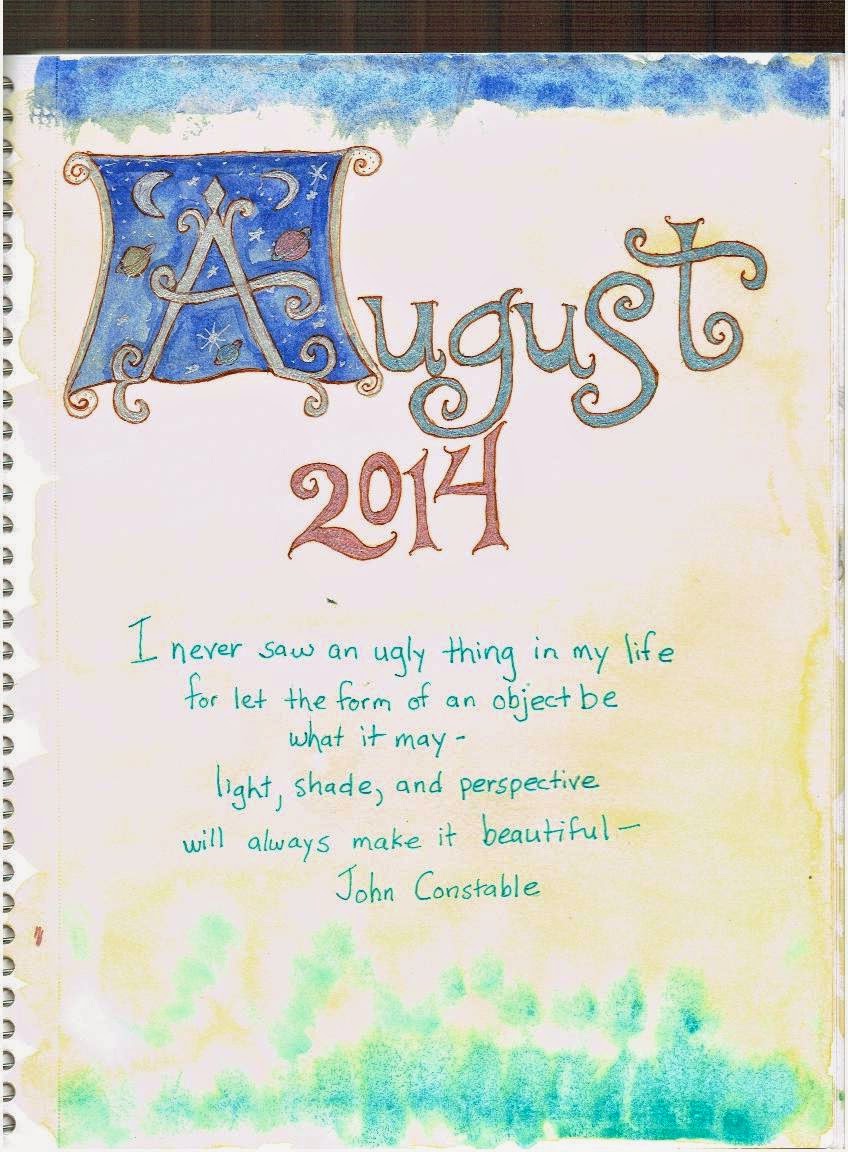 August
2014
I never saw an ugly thing in my life
for let the form of an object be
what it may -
light, shade, and perspective
will always make it beautiful —
John Constable